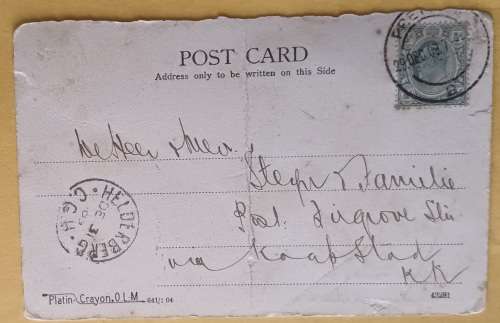 POST CARD
Address only to be written on this Side
De Heer & Mev.
Steyn & Familie
Post. Firgrove Stn
via Kaapstad
KK
HELDERBERG · C.G.H.
DE 31
Platin-Crayon, O.L.M. 641/: 04